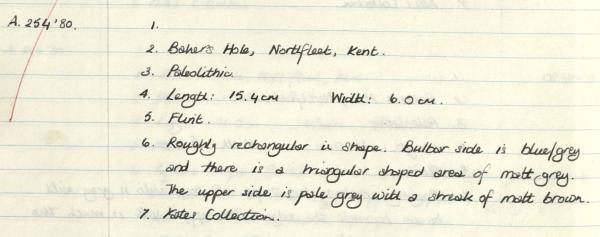 A. 254'80. 1.
2. Baker's Hole, Northfleet, Kent.
3. Paleolithic.
4. Length: 15.4cm Width: 6.0cm.
5. Flint.
6. Roughly rechangular in shape. Bulbar side is blue/grey
and there is a triangular shaped area of matt grey.
The upper side is pale grey with a streak of matt brown.
7. Collection.